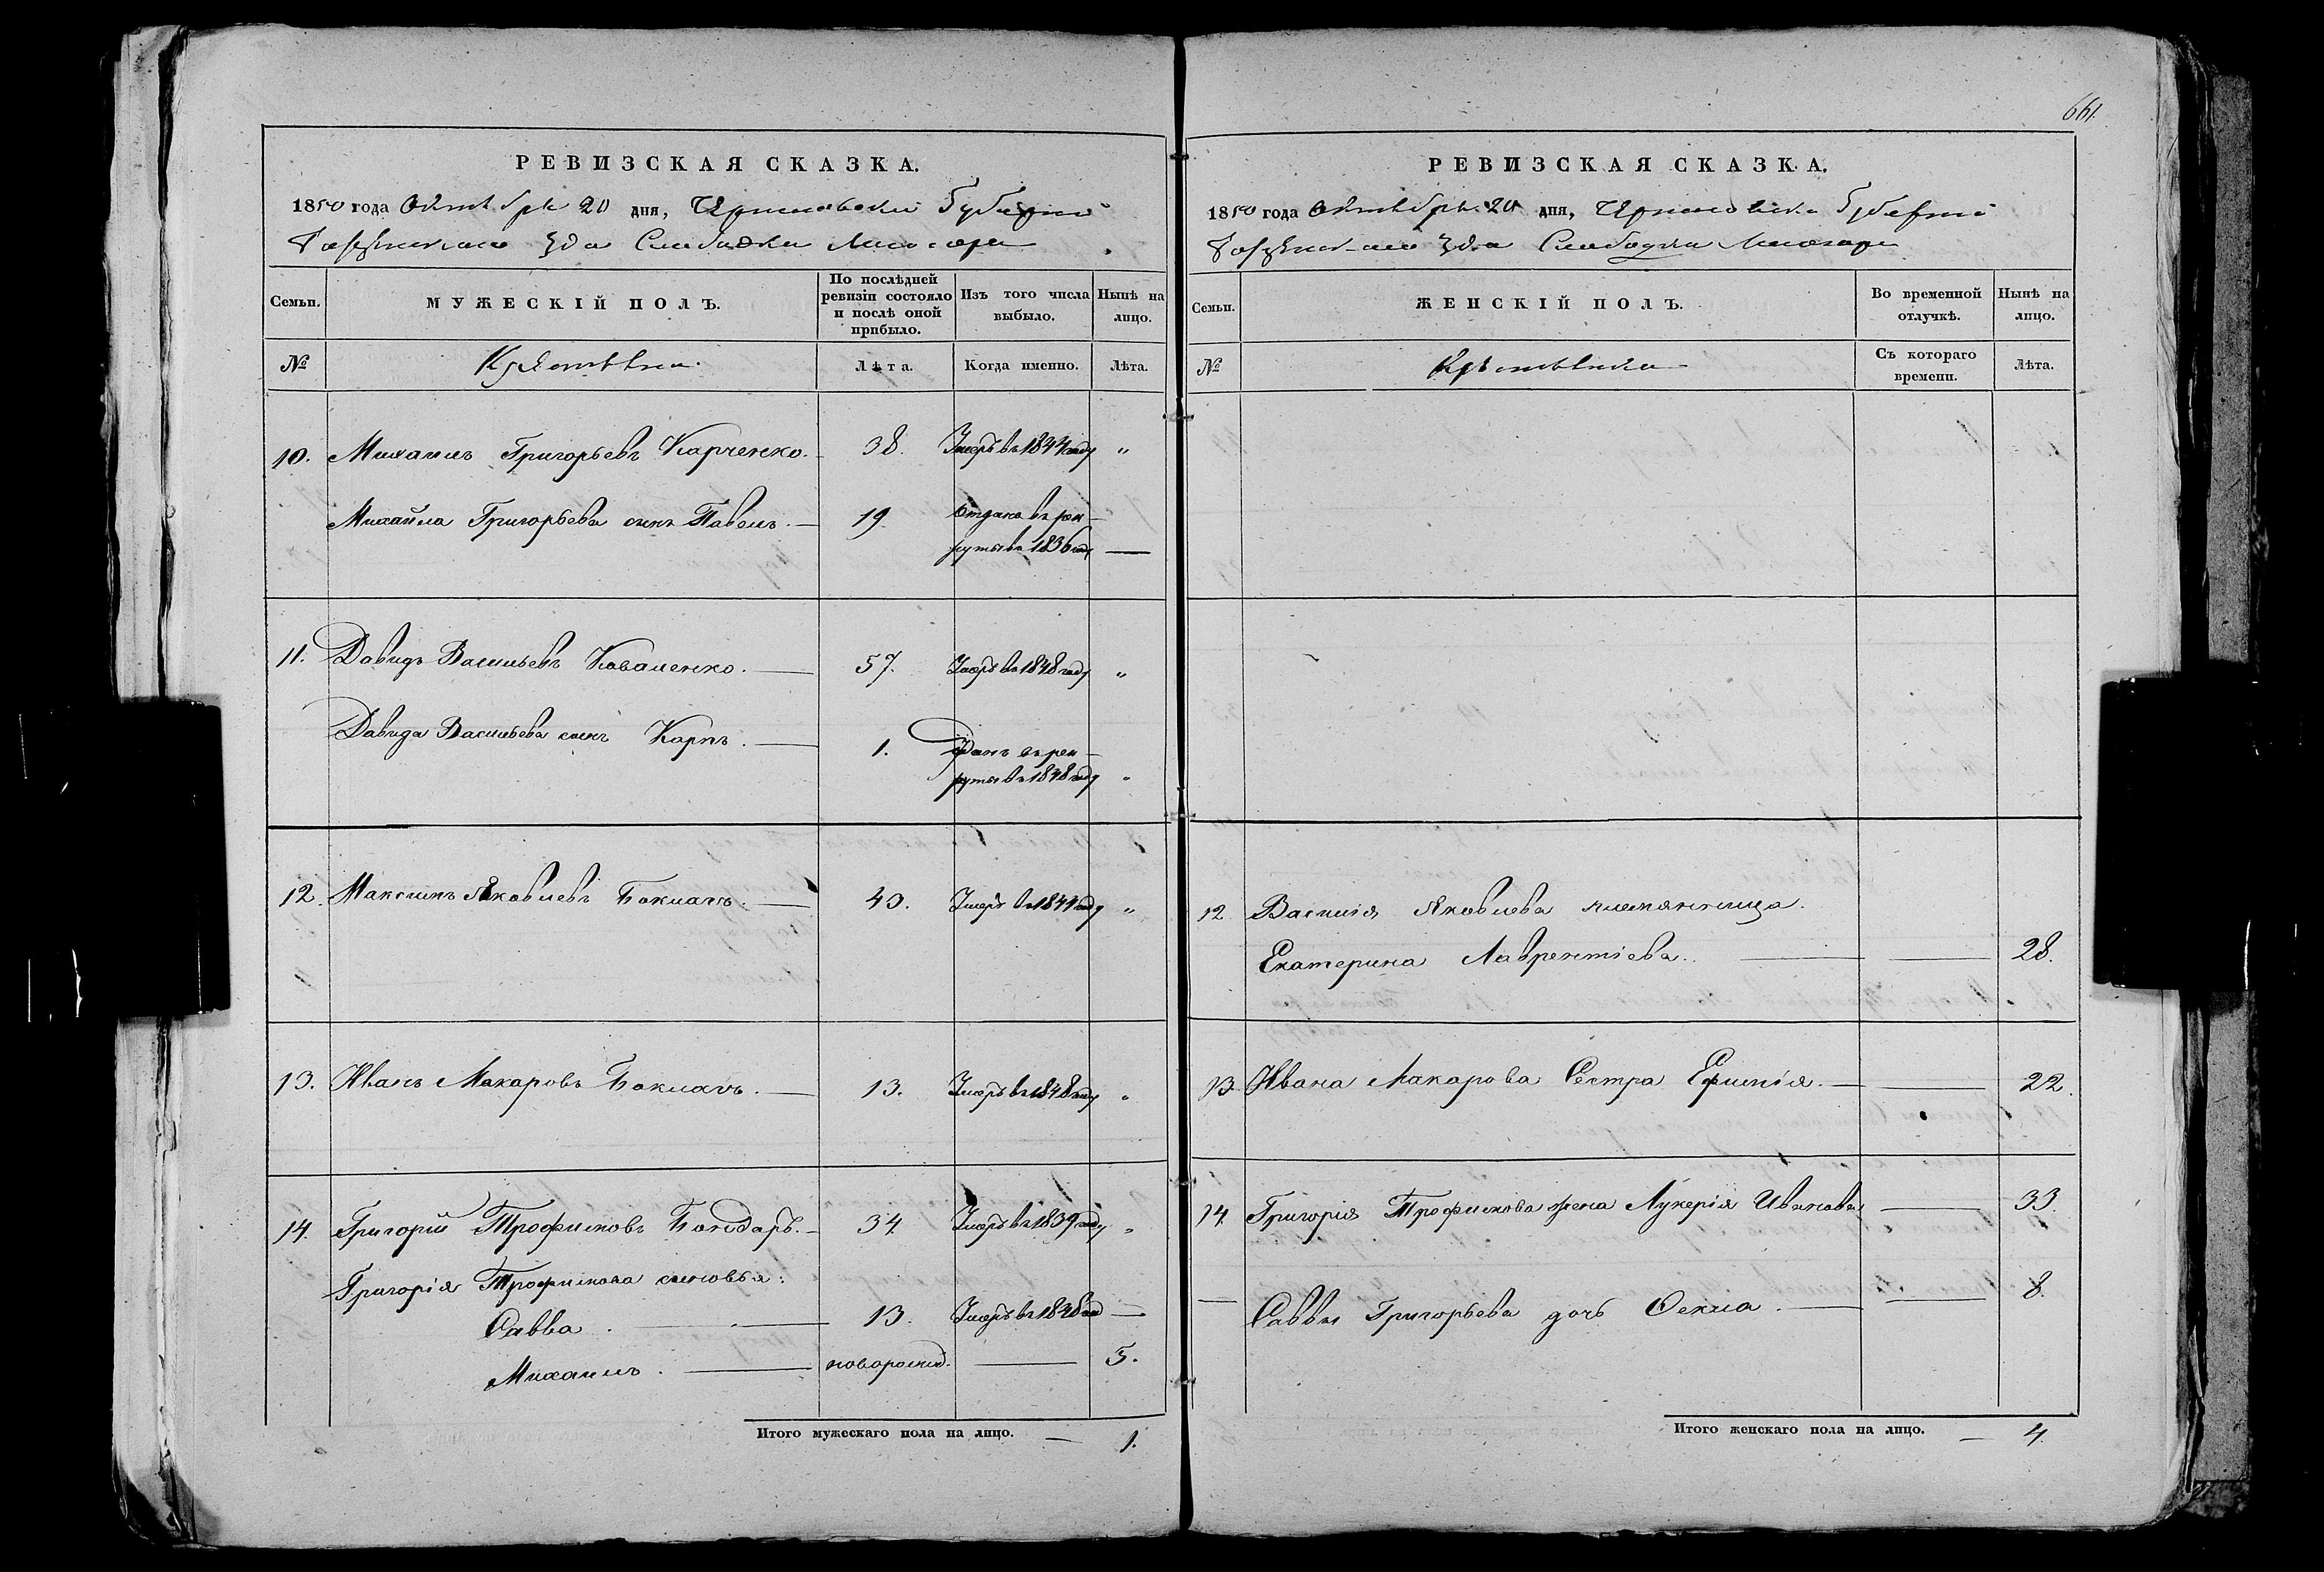 661.
РЕВИЗСКАЯ СКАЗКА.
1850 года Октября 20 дня, Черниговской Губерніи
уѣзда Слободки
Семьи.
МУЖЕСКІЙ ПОЛЪ.
По послѣдней ревизіи состояло и послѣ оной прибыло.
Изъ того числа выбыло.
Нынѣ на лицо.
№
Крестьяне.
Лѣта.
Когда именно.
Лѣта.
10. Михаилъ Григорьевъ Карченко. 38. Умеръ въ 1844 году "
Михайла Григорьева сынъ Павелъ. 19. Отданъ въ рек-
руты въ 1836 году —
11. Давидъ Васильевъ Коваленко. 57. Умеръ въ 1848 году "
Давида Васильева сынъ Карпъ. 1. Отданъ въ рек-
руты въ 1848 году "
12. Максимъ Яковлевъ Баклачъ. 43. Умеръ въ 1844 году "
13. Иванъ Макаровъ Баклачъ. 13. Умеръ въ 1848 году "
14. Григорій Трофимовъ Бондарь. 34. Умеръ въ 1839 году "
Григорія Трофимова сыновья:
Савва. 13. Умеръ въ 1848 год —
Михаилъ. новорожд. — 5.
Итого мужескаго пола на лицо. — 1.
РЕВИЗСКАЯ СКАЗКА.
1850 года Октября 20 дня, Черниговской Губерніи
уѣзда Слободки
Семьи.
ЖЕНСКІЙ ПОЛЪ.
Во временной отлучкѣ.
Нынѣ на лицо.
№
Крестьянки
Съ котораго времени.
Лѣта.
12. Василія Яковлева племянница.
Екатерина Лаврентіева. — 28.
13. Ивана Макарова Сестра Ефимія. — 22.
14. Григорія Трофимова жена Лукерія Иванова — 33.
Саввы Григорьева дочь Фекла. — 8.
Итого женскаго пола на лицо. — 4.